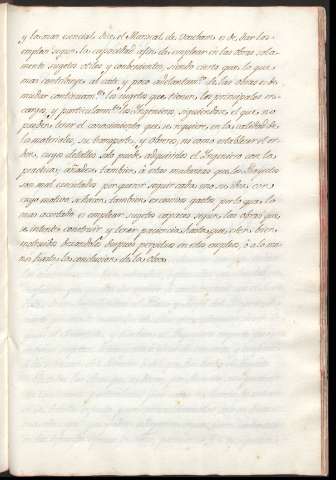 y lo mas esencial, dice el Mariscal de Vauban, es de, dar los
empleos segun la capacidad, afin de emplear en las obras, sola-
mente sugetos utiles y combenientes, siendo cierto que lo que
mas contribuye al coste y poco adelantam.to de las obras es de
mudar continuam.te los sugetos que tienen los principales en-
cargos, y particularm.te los Ingenieros, siguiendose el que no
pueden tener el conocimiento que se requiere, en la calidad de
los materiales, su transporte, y demas, ni como establecer el or-
den, cuyo detalle solo puede adquirirlo el Ingeniero con la
practica; añade tambien, à estas mudanzas que los Proyectos
son mal executados por querer seguir cada uno su idea con
cuyo motivo se hacen tambien excesivos gastos, por lo que lo
mas acertado es emplear sugetos capaces segun las obras que
se intente construir, y tener paciencia hasta que esten bien
instruidos dexandolos despues perpetuos en estos empleos, ò a lo me-
nos hasta la conclusion de las obras.